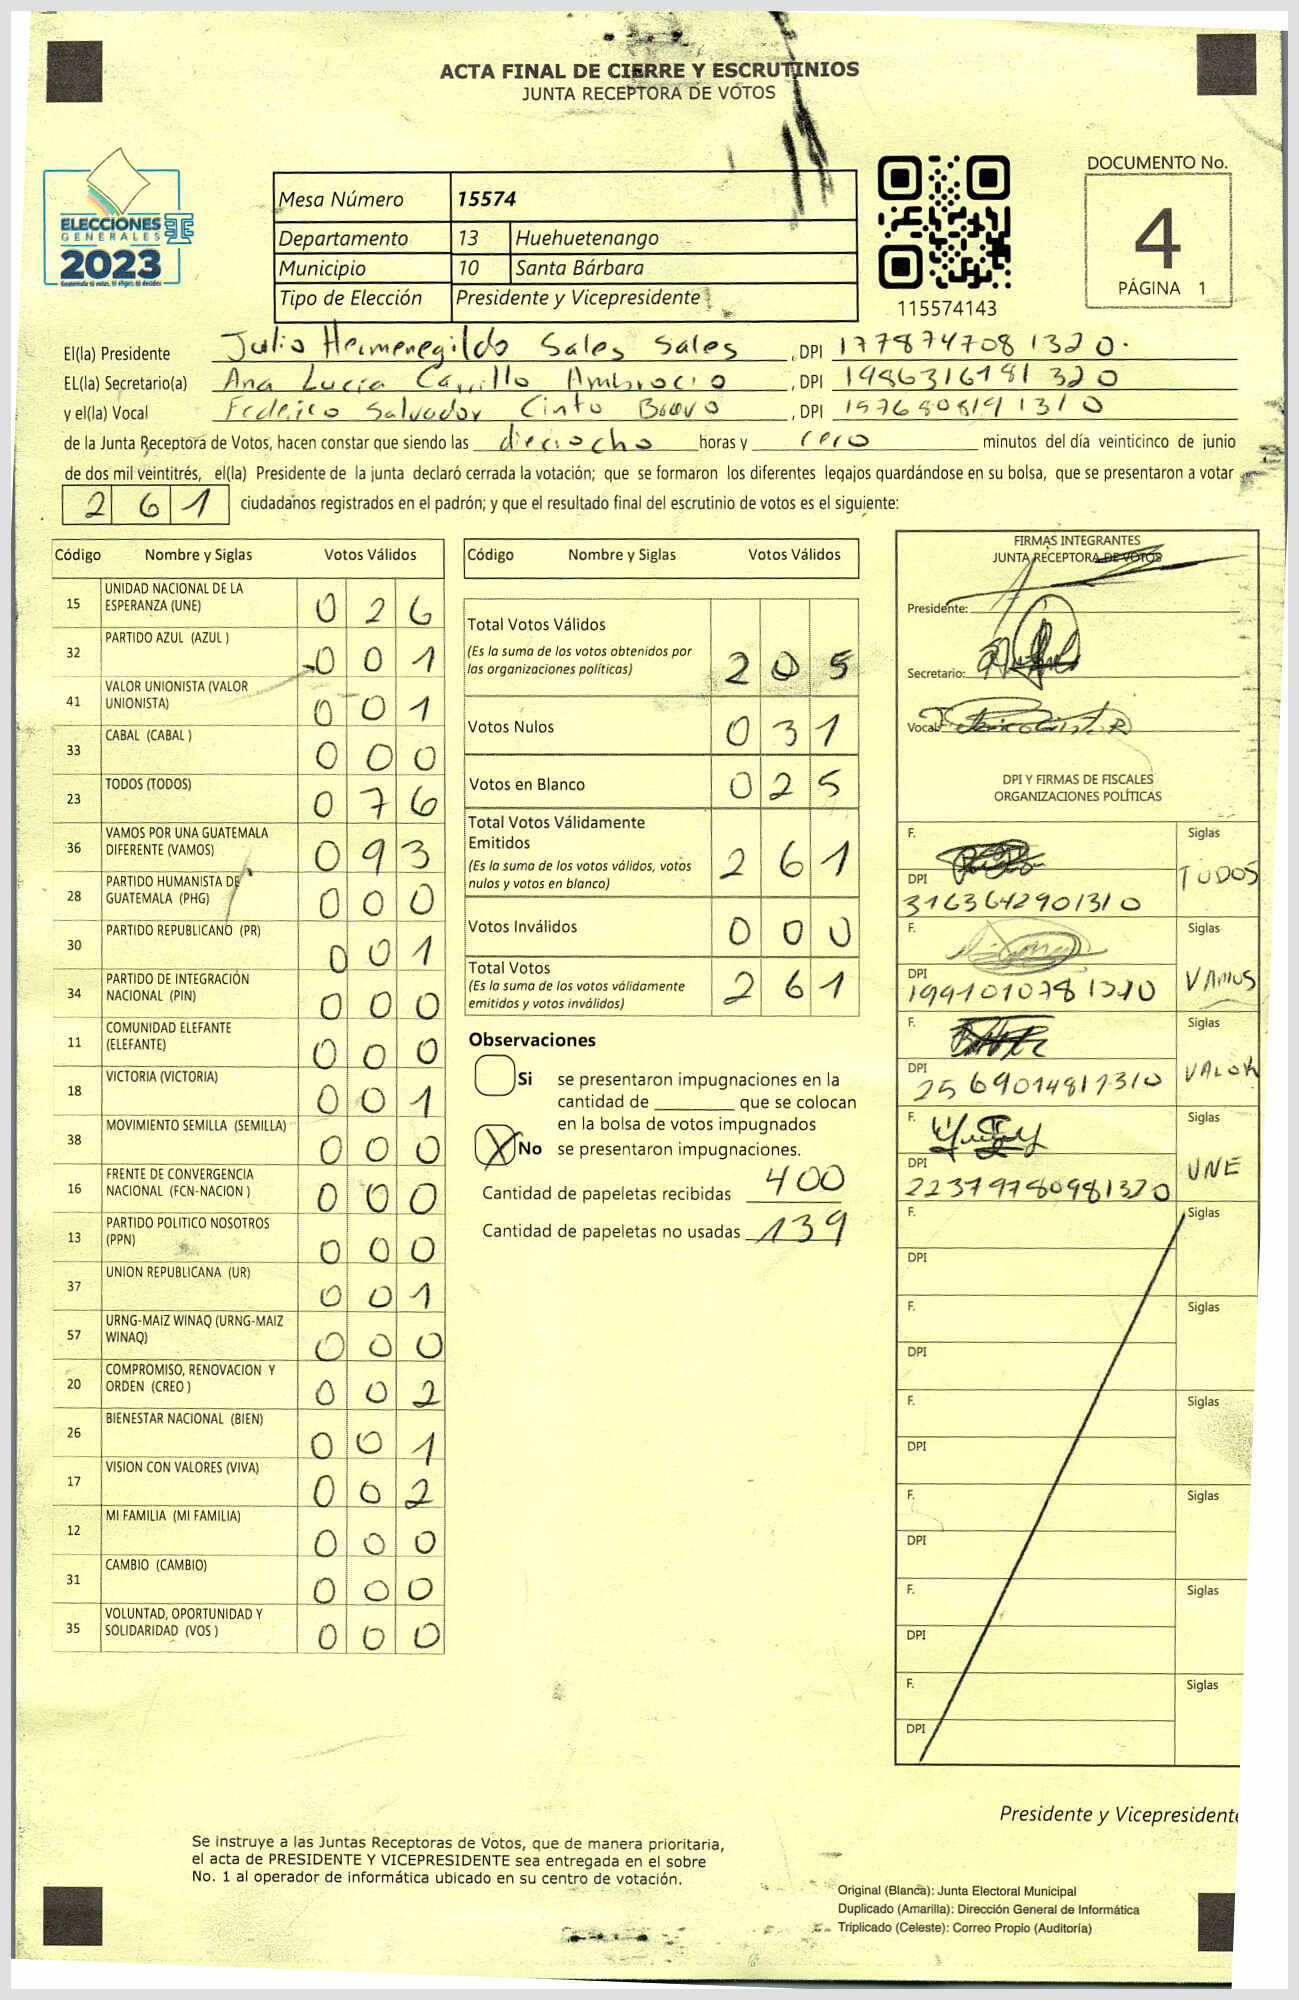 ACTA FINAL DE CIERRE Y ESCRUTINIOS
JUNTA RECEPTORA DE VOTOS
ELECCIONES
GENERALES
2023
Guatemala tú votas, tú eliges, tú decides
Mesa Número 15574
Departamento 13 Huehuetenango
Municipio 10 Santa Bárbara
Tipo de Elección Presidente y Vicepresidente
115574143
DOCUMENTO No.
4
PÁGINA 1
El(la) Presidente Julio Hermenegildo Sales Sales, DPI 1778747081320.
EL(la) Secretario(a) Ana Lucia Carrillo Ambrocio, DPI 1986316181320
y el(la) Vocal Federico Salvador Cinto Bravo, DPI 1576808191310
de la Junta Receptora de Votos, hacen constar que siendo las dieciocho horas y cero minutos del día veinticinco de junio
de dos mil veintitrés, el(la) Presidente de la junta declaró cerrada la votación; que se formaron los diferentes legajos quardándose en su bolsa, que se presentaron a votar
261 ciudadanos registrados en el padrón; y que el resultado final del escrutinio de votos es el siguiente:
Código Nombre y Siglas Votos Válidos
15 UNIDAD NACIONAL DE LA
ESPERANZA (UNE) 026
32 PARTIDO AZUL (AZUL ) 001
41 VALOR UNIONISTA (VALOR
UNIONISTA) 001
33 CABAL (CABAL ) 000
23 TODOS (TODOS) 076
36 VAMOS POR UNA GUATEMALA
DIFERENTE (VAMOS) 093
28 PARTIDO HUMANISTA DE
GUATEMALA (PHG) 000
30 PARTIDO REPUBLICANO (PR) 001
34 PARTIDO DE INTEGRACIÓN
NACIONAL (PIN) 000
11 COMUNIDAD ELEFANTE
(ELEFANTE) 000
18 VICTORIA (VICTORIA) 001
38 MOVIMIENTO SEMILLA (SEMILLA) 000
16 FRENTE DE CONVERGENCIA
NACIONAL (FCN-NACION ) 000
13 PARTIDO POLITICO NOSOTROS
(PPN) 000
37 UNION REPUBLICANA (UR) 001
57 URNG-MAIZ WINAQ (URNG-MAIZ
WINAQ) 000
20 COMPROMISO, RENOVACION Y
ORDEN (CREO ) 002
26 BIENESTAR NACIONAL (BIEN) 001
17 VISION CON VALORES (VIVA) 002
12 MI FAMILIA (MI FAMILIA) 000
31 CAMBIO (CAMBIO) 000
35 VOLUNTAD, OPORTUNIDAD Y
SOLIDARIDAD (VOS ) 000
Código Nombre y Siglas Votos Válidos
Total Votos Válidos
(Es la suma de los votos obtenidos por
las organizaciones políticas) 205
Votos Nulos 031
Votos en Blanco 025
Total Votos Válidamente
Emitidos
(Es la suma de los votos válidos, votos
nulos y votos en blanco) 261
Votos Inválidos 000
Total Votos
(Es la suma de los votos válidamente
emitidos y votos inválidos) 261
Observaciones
Si se presentaron impugnaciones en la
cantidad de ________ que se colocan
en la bolsa de votos impugnados
X No se presentaron impugnaciones.
Cantidad de papeletas recibidas 400
Cantidad de papeletas no usadas 139
FIRMAS INTEGRANTES
JUNTA RECEPTORA DE VOTOS
Presidente:
Secretario:
Vocal:
DPI Y FIRMAS DE FISCALES
ORGANIZACIONES POLÍTICAS
F. Siglas
TODOS
DPI
3163642901310
F. Siglas
VAMOS
DPI
1991010781320
F. Siglas
VALOR
DPI
2569014811310
F. Siglas
UNE
DPI
22379780981320
F. Siglas
DPI
F. Siglas
DPI
F. Siglas
DPI
F. Siglas
DPI
F. Siglas
DPI
F. Siglas
DPI
Presidente y Vicepresidente
Se instruye a las Juntas Receptoras de Votos, que de manera prioritaria,
el acta de PRESIDENTE Y VICEPRESIDENTE sea entregada en el sobre
No. 1 al operador de informática ubicado en su centro de votación.
Original (Blanca): Junta Electoral Municipal
Duplicado (Amarilla): Dirección General de Informática
Triplicado (Celeste): Correo Propio (Auditoría)